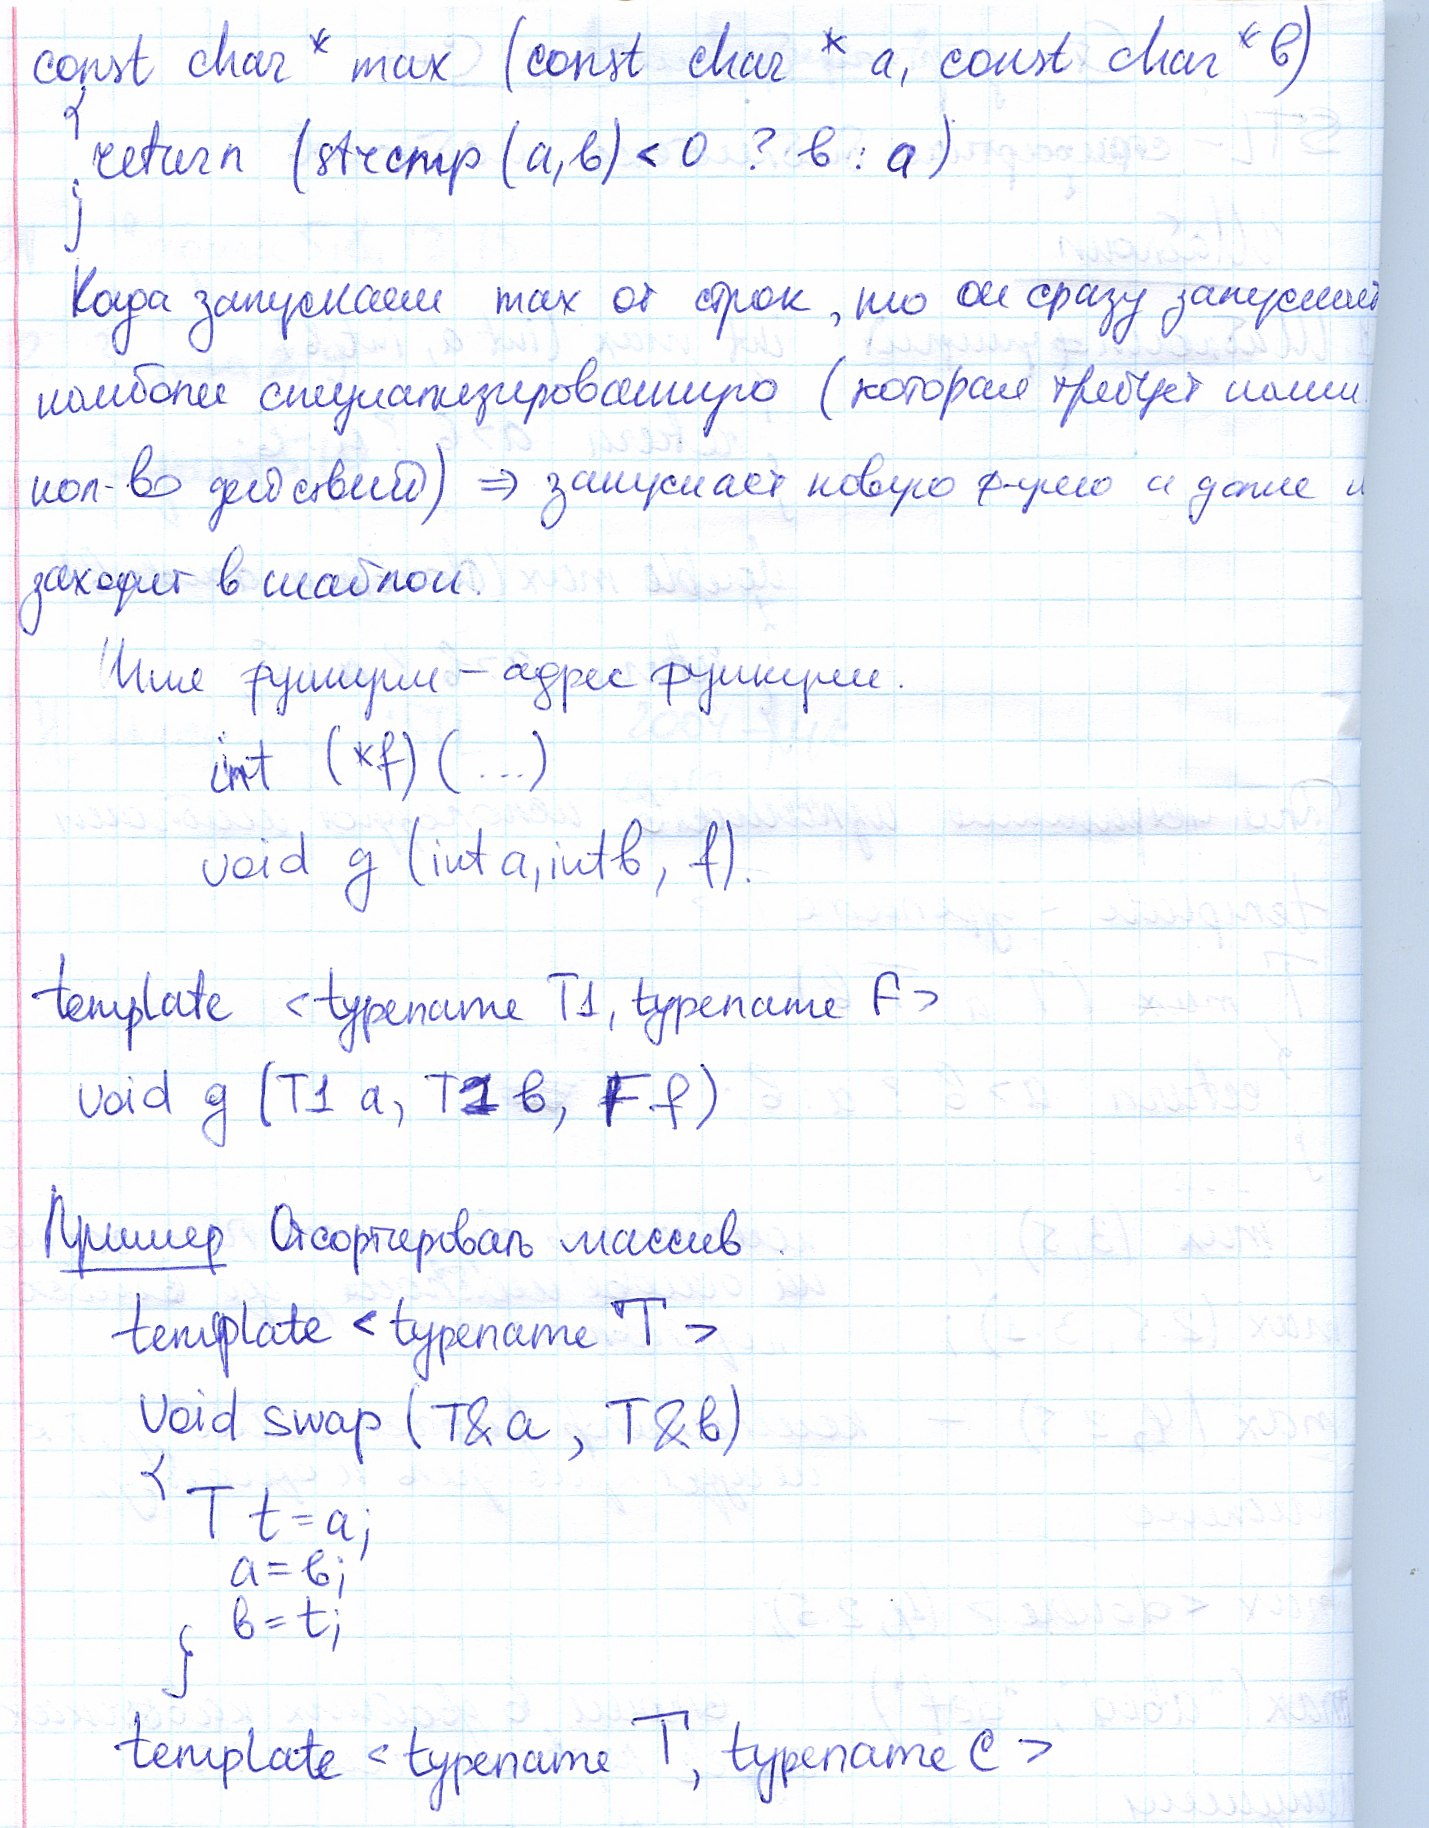 const char * max (const char * a, const char * b)
{
return (strcmp (a,b) < 0 ? b : a)
}
Когда запускаем max от строк, то он сразу запускает
наиболее специализированную (которая требует наим.
кол-во действий) ⇒ запускает новую ф-цию и даже н
заходит в шаблон.
Имя функции – адрес функции.
int (*f) (...)
void g (int a, int b, f).
template < typename T1, typename F >
void g (T1 a, T1 b, F f)
Пример Отсортировать массив.
template < typename T >
void swap (T& a, T& b)
{
T t = a;
a = b;
b = t;
}
template < typename T, typename C >